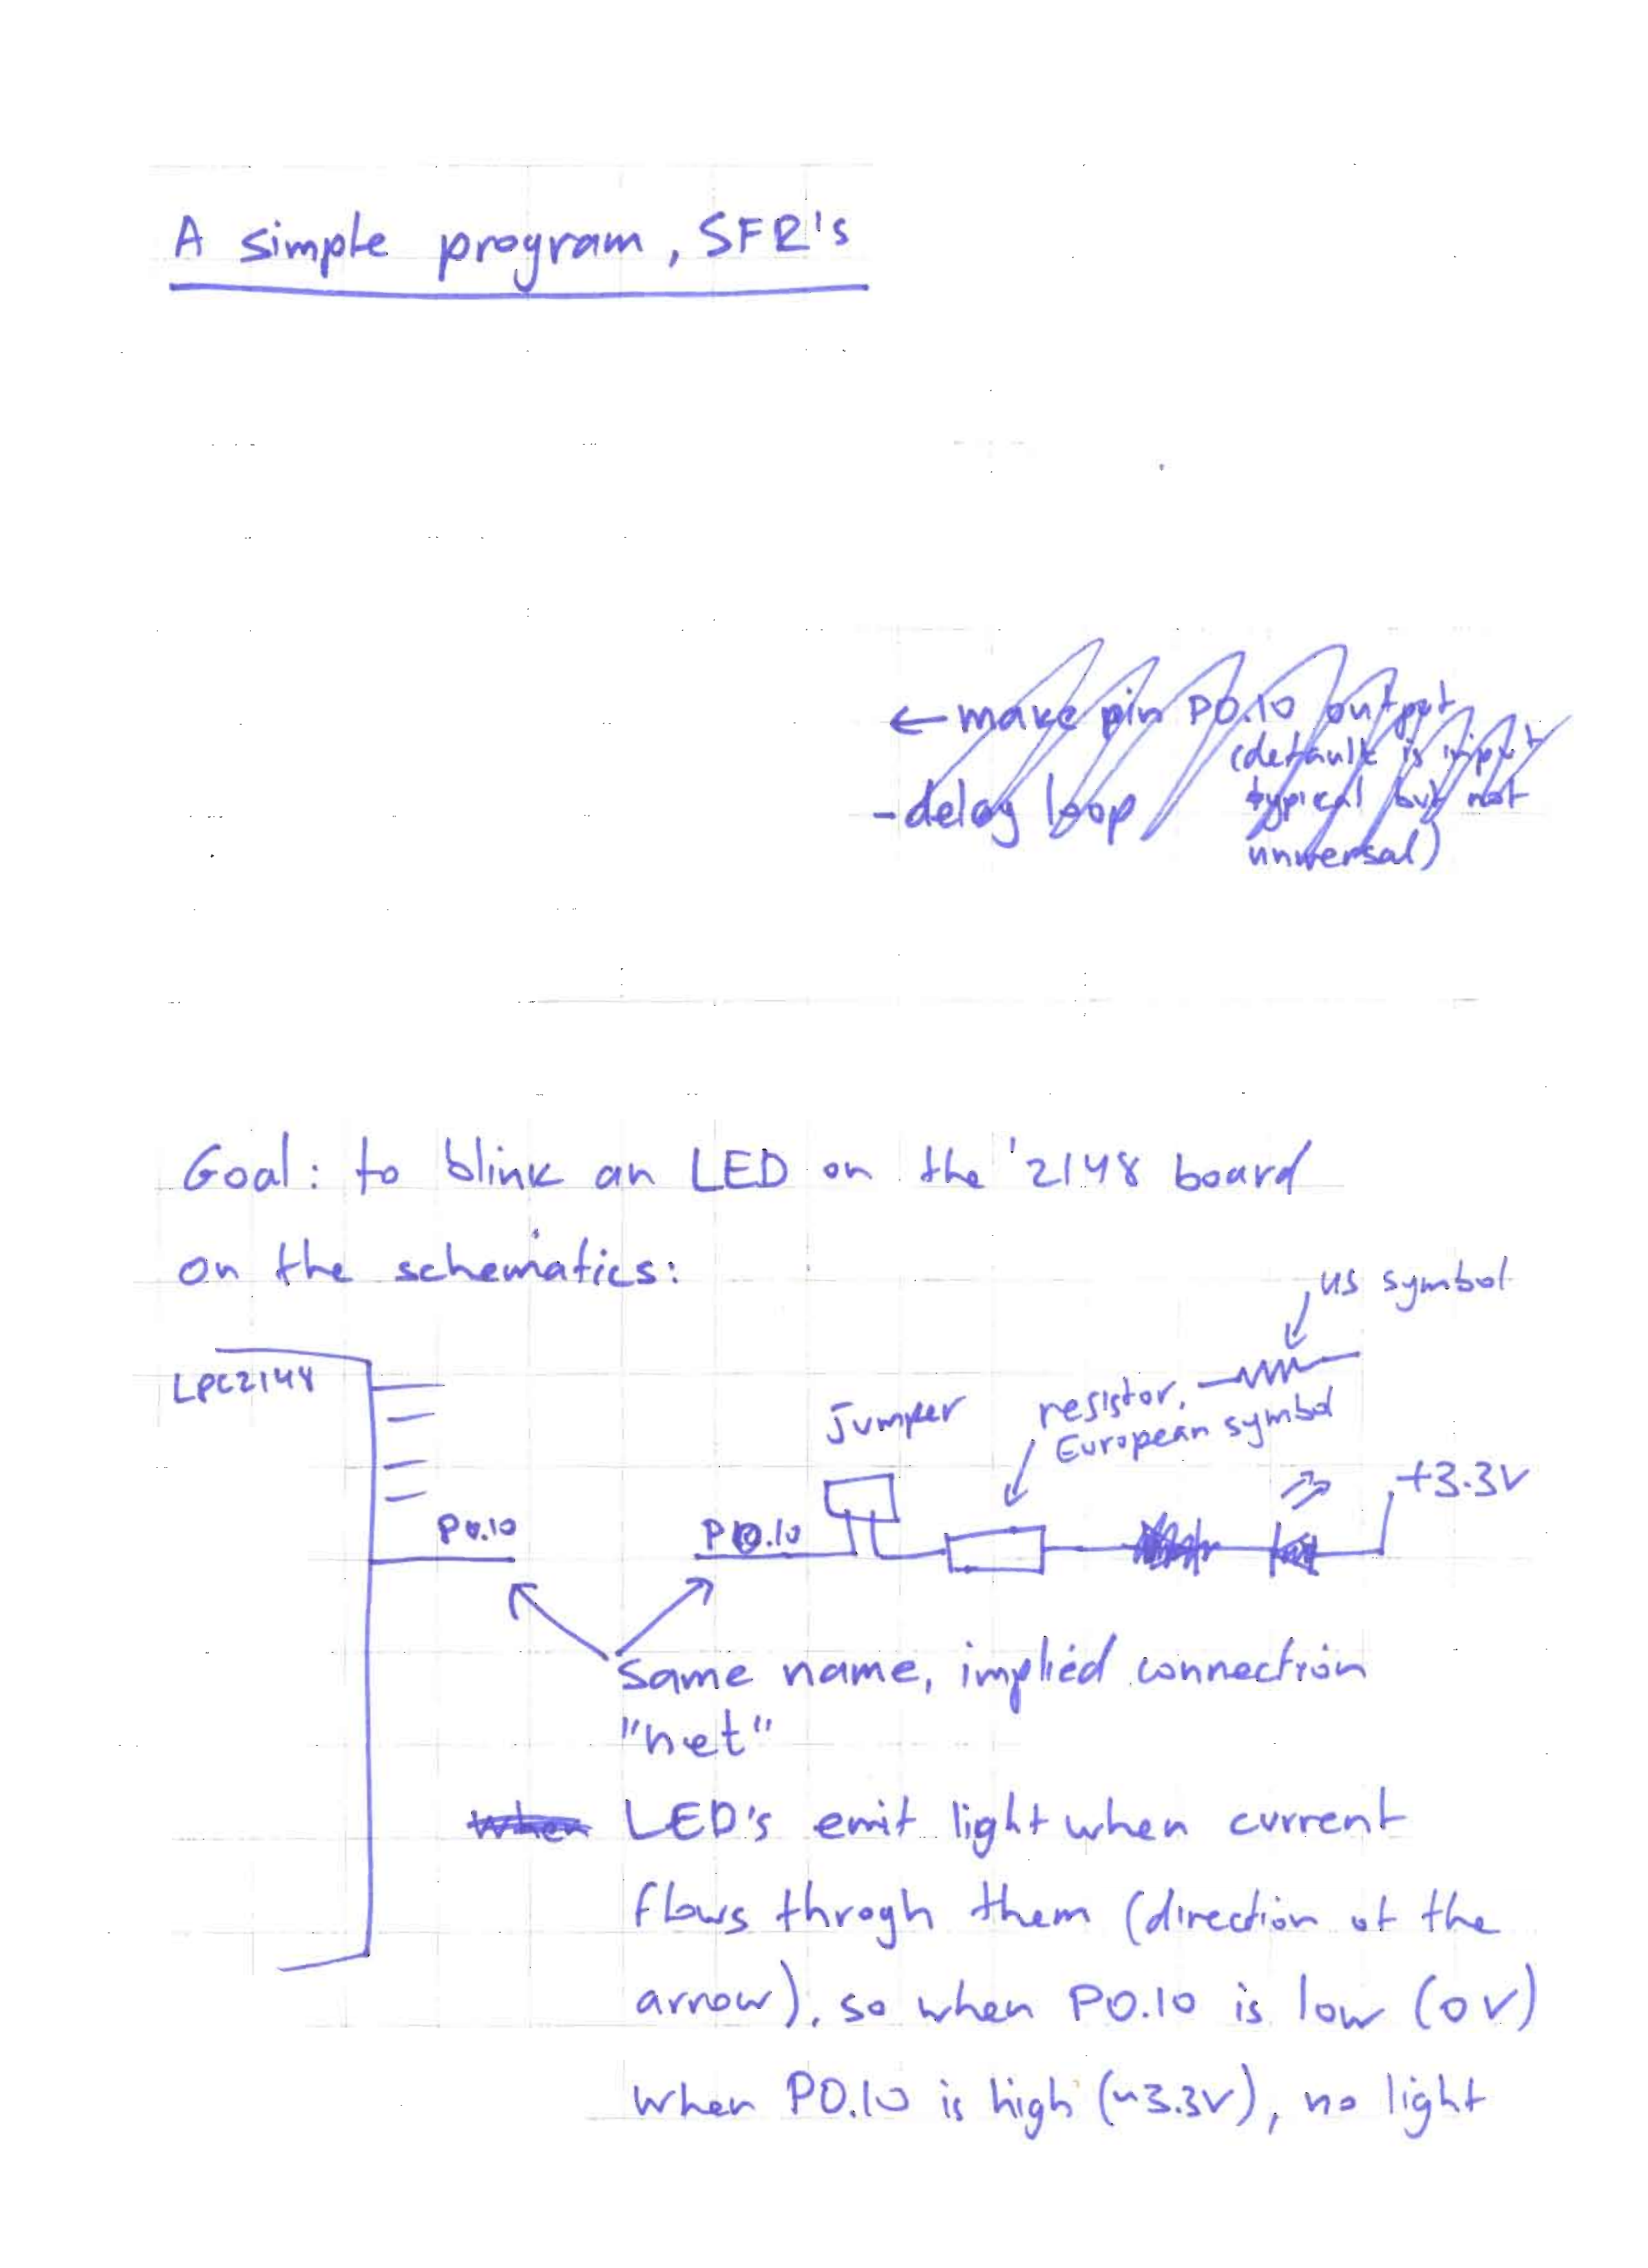 A simple program, SFR's
← make pin P0.10 output
(default is input
typical but not
universal)
- delay loop
Goal: to blink an LED on the '2148 board
on the schematics:
US symbol
LPC2148
Jumper
resistor,
European symbol
+3.3V
P0.10
P0.10
Same name, implied connection
"net"
When LED's emit light when current
flows throgh them (direction of the
arrow), so when P0.10 is low (0V)
when P0.10 is high (~3.3V), no light